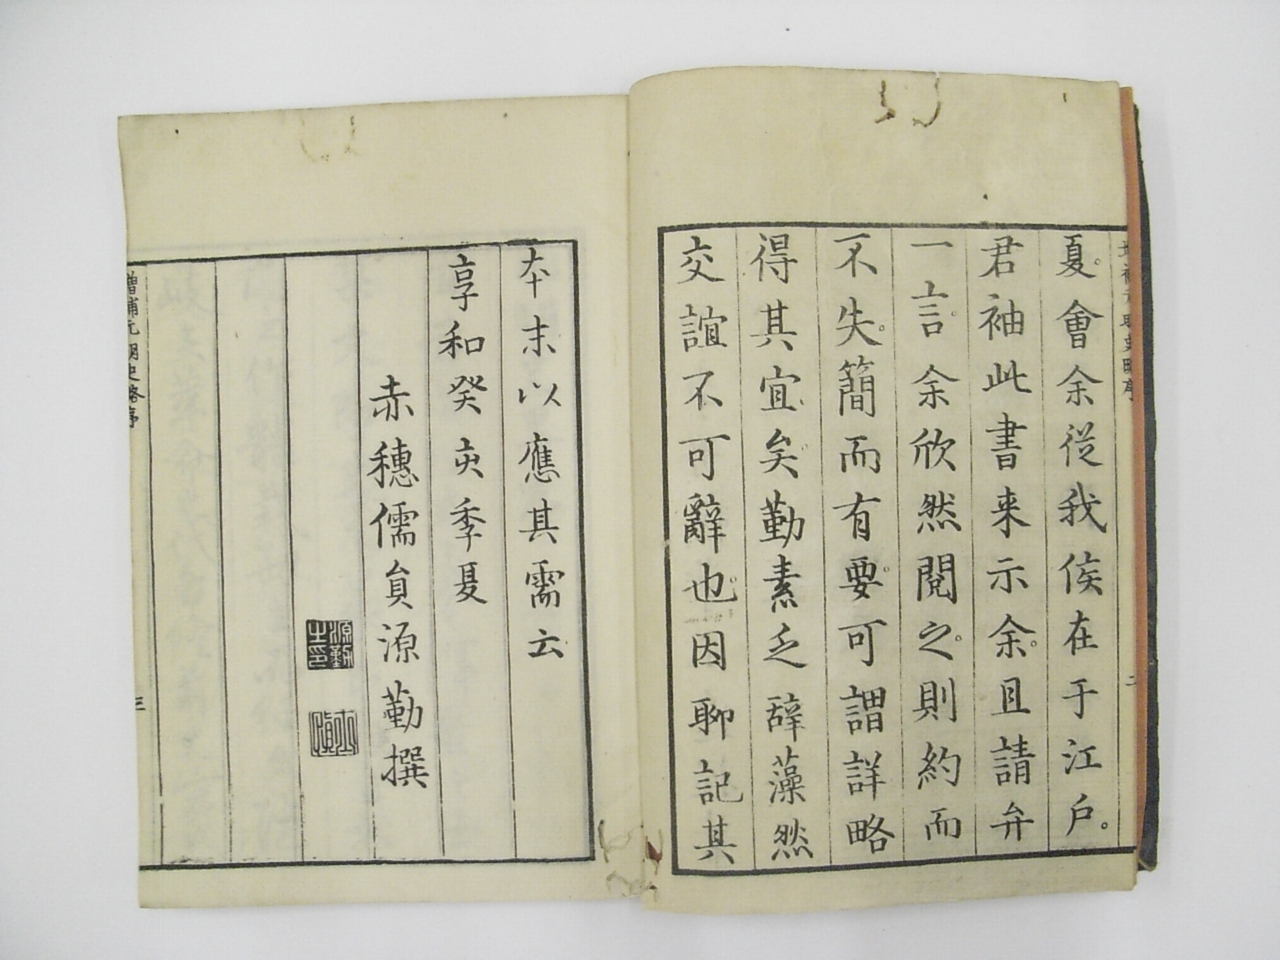 増補元明史略序
二
夏。會余從我侯在于江戸。
君袖此書来示余。且請弁
一言。余欣然閲之。則約而
不失。簡而有要。可謂詳略
得其宜矣。勤素乏辭藻然
交誼不可辭也。因聊記其
本末以應其需云
享和癸亥季夏
赤穗儒員源勤撰
源勤之印
増補元明史略序
三